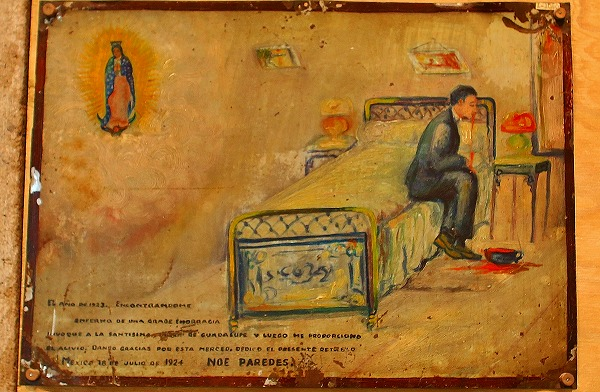 EL AÑO DE 1923, ENCONTRANDOME
ENFERMO DE UNA GRABE EMORRAGIA
INVOQUE A LA SANTISIMA VIRGEN DE GUADALUPE Y LUEGO ME PROPORCIONO
EL ALIVIO. DANDO GRACIAS POR ESTA MERCED, DEDICO EL PRESENTE RETABLO
MEXICO 18 DE JULIO DE 1924 NOE PAREDES.